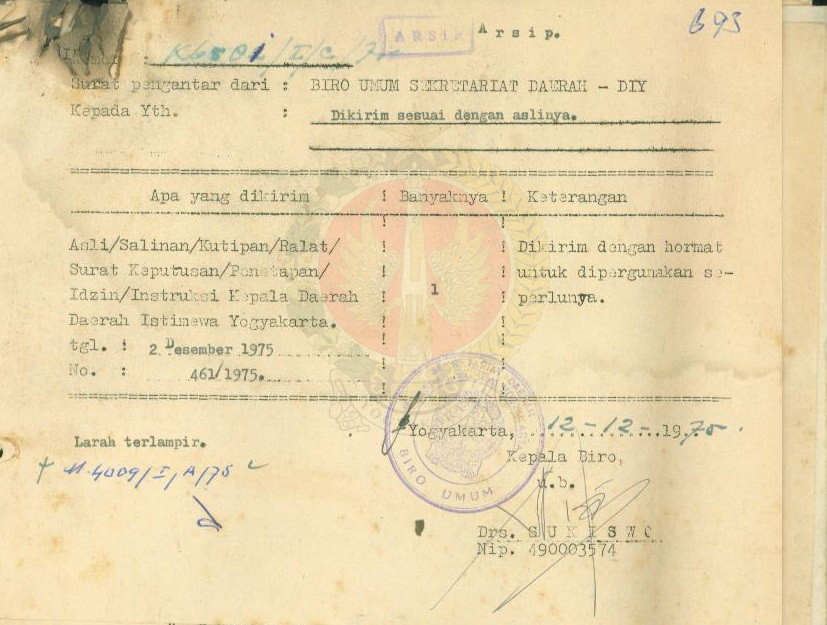 Arsip.
ARSIP
693
Nomor :
Surat pengantar dari : BIRO UMUM SEKRETARIAT DAERAH - DIY
Kepada Yth. : Dikirim sesuai dengan aslinya.
Apa yang dikirim ! Banyaknya ! Keterangan
Asli/Salinan/Kutipan/Ralat/ ! ! Dikirim dengan hormat
Surat Keputusan/Penetapan/ ! ! untuk dipergunakan se-
Idzin/Instruksi Kepala Daerah ! 1 ! perlunya.
Daerah Istimewa Yogyakarta. ! !
tgl. : 2 Desember 1975 ! !
No. : 461/1975. ! !
Yogyakarta, 12-12-1975.
Larah terlampir.
Kepala Biro,
u.b.
BIRO UMUM
Drs. SUKISWO
Nip. 490003574